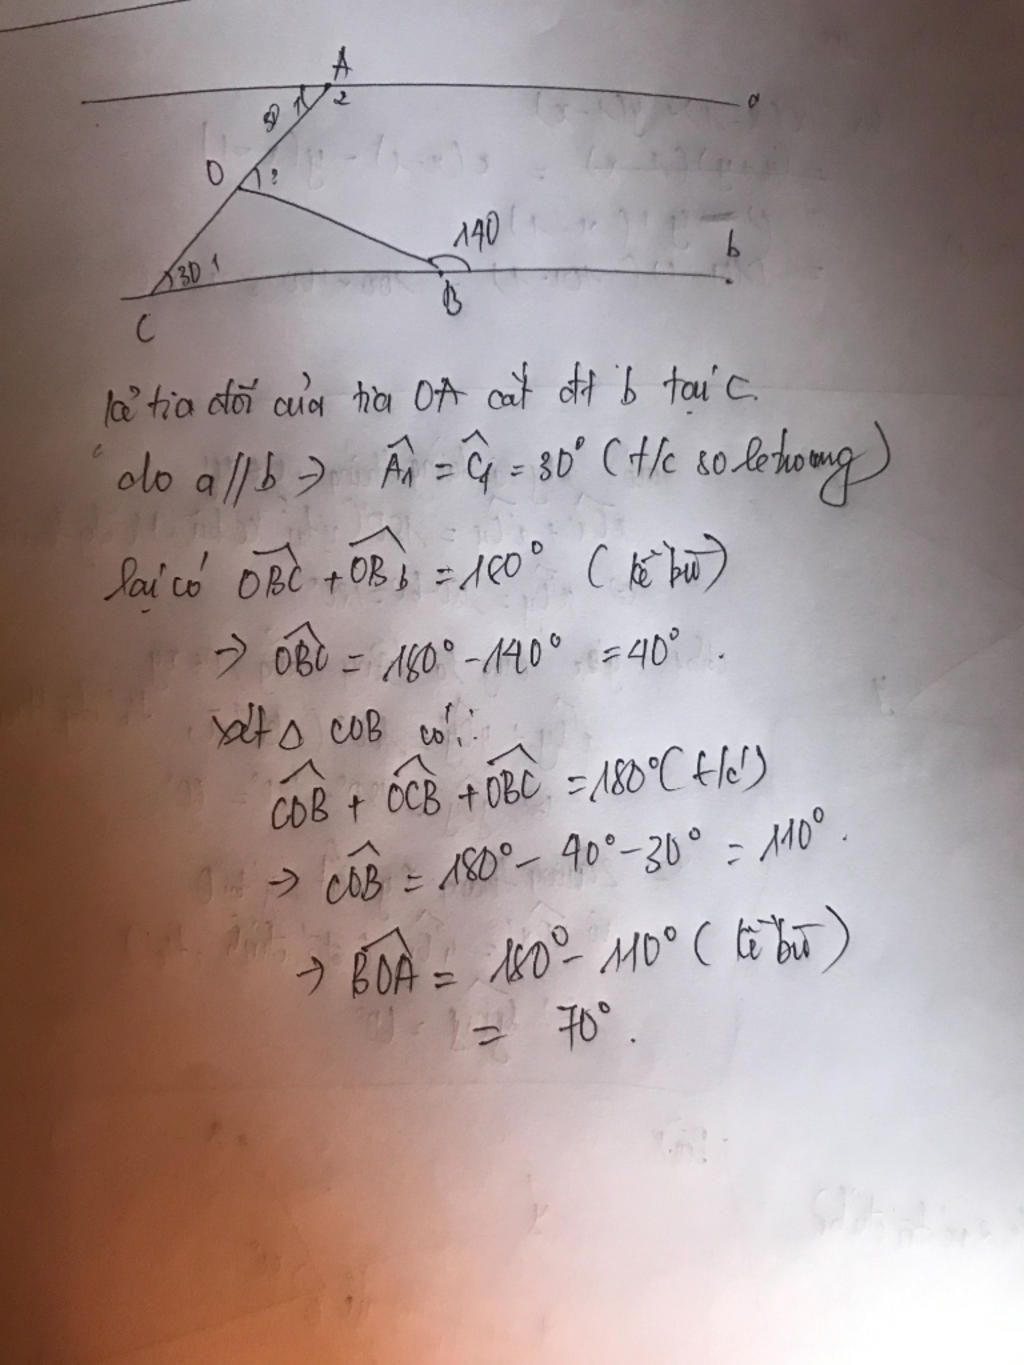 A
a
1
2
30
O
?
140
b
30
1
B
C
kẻ tia đối của tia OA cắt đt b tại C.
do a//b → Â1 = Ĉ1 = 30° (t/c so le trong)
lại có OBC + OBb = 180° (kề bù)
→ OBC = 180° - 140° = 40°.
xét Δ COB có:
COB + OCB + OBC = 180° (t/c)
→ COB = 180° - 40° - 30° = 110°.
→ BOA = 180° - 110° (kề bù)
= 70°.